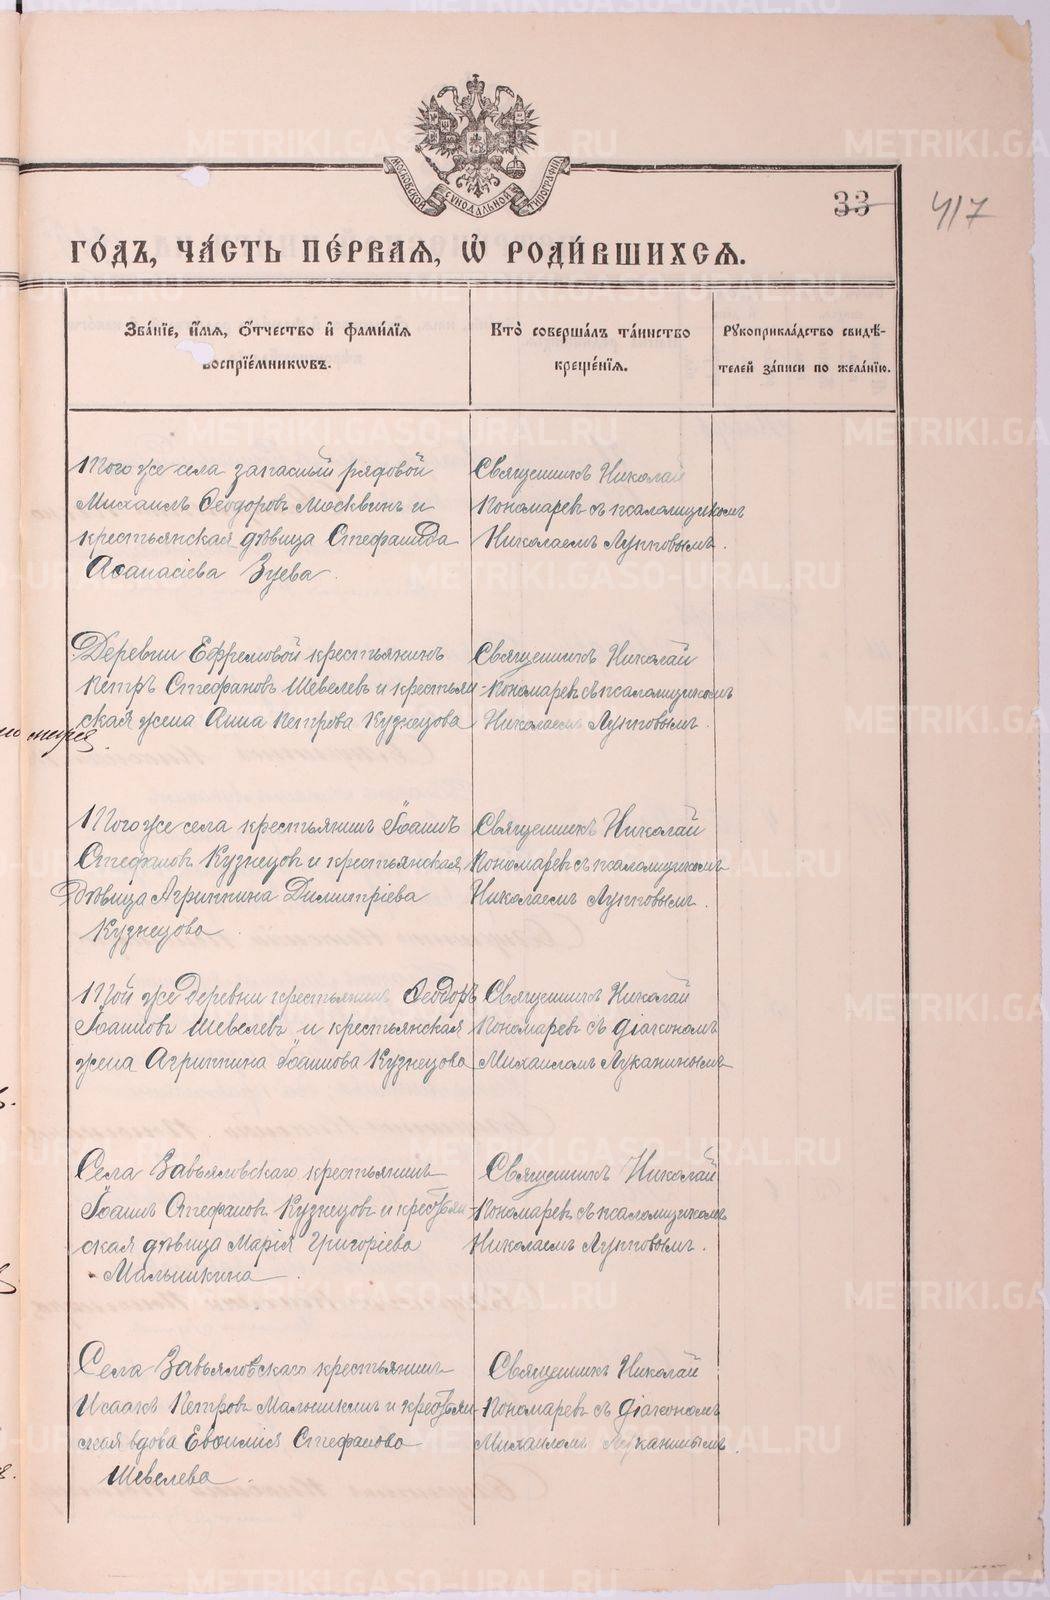 МОСКОВСКОЙ СѴНОДАЛЬНОЙ ТИПОГРАФІИ
33
417
ГО́ДЪ, ЧА́СТЬ ПЕ́РВАЯ, Ѡ҆ РОДИ́ВШИХСЯ.
Зва́нїе, и҆́мя, ѻ҆́тчество и҆ фами́лїя
воспрїе́мникѡвъ.
Кто̀ соверша́лъ та́инство
креще́нїя.
Рꙋкоприкла́дство свидѣ́-
телей за́писи по жела́нїю.
Того же села запасный рядовой
Михаилъ Ѳеодоровъ Москвинъ и
крестьянская дѣвица Стефанида
Аѳанасіева Зуева.
Священникъ Николай
Пономаревъ съ псаломщикомъ
Николаемъ Лупповымъ.
Деревни Ефремовой крестьянинъ
Петръ Стефановъ Шевелевъ и крестьян
ская жена Анна Петрова Кузнецова
Священникъ Николай
Пономаревъ съ псаломщикомъ
Николаемъ Лупповымъ.
Того же села крестьянинъ Іоаннъ
Стефановъ Кузнецовъ и крестьянская
дѣвица Агриппина Димитріева
Кузнецова.
Священникъ Николай
Пономаревъ съ псаломщикомъ
Николаемъ Лупповымъ.
Той же деревни крестьянинъ Ѳеодоръ
Іоанновъ Шевелевъ и крестьянская
жена Агриппина Іоаннова Кузнецова
Священникъ Николай
Пономаревъ съ діакономъ
Михаиломъ Луканинымъ
Села Завьяловскаго крестьянинъ
Іоаннъ Стефановъ Кузнецовъ и крестьян
ская дѣвица Марія Григоріева
Малышкина.
Священникъ Николай
Пономаревъ съ псаломщикомъ
Николаемъ Лупповымъ.
Села Завьяловскаго крестьянинъ
Исаакъ Петровъ Малышкинъ и крестьян
ская вдова Евѳимія Стефанова
Шевелева.
Священникъ Николай
Пономаревъ съ діакономъ
Михаиломъ Луканинымъ.
METRIKI.GASO-URAL.RU